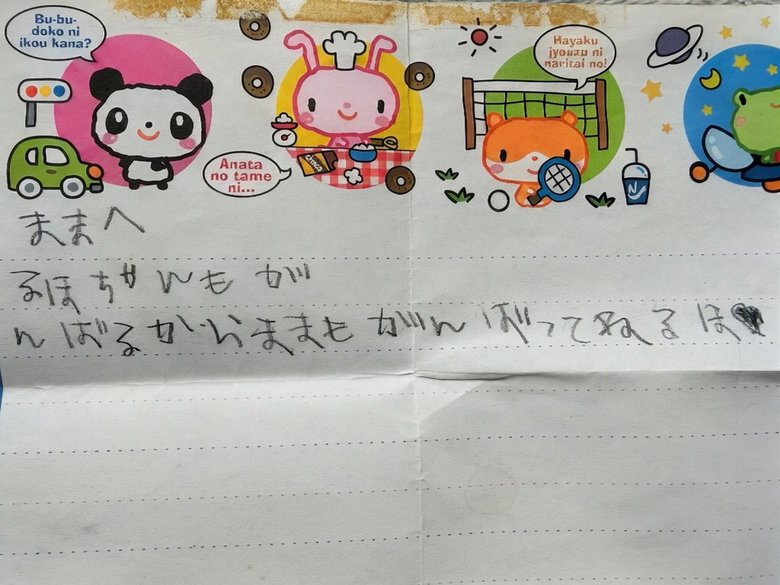 Bu-bu-
doko ni
ikou kana?
Anata
no tame
ni...
CHOCO
Hayaku
jyouzu ni
naritai no!
N
ままへ
るほちゃんもが
んばるからままもがんばってねるほ